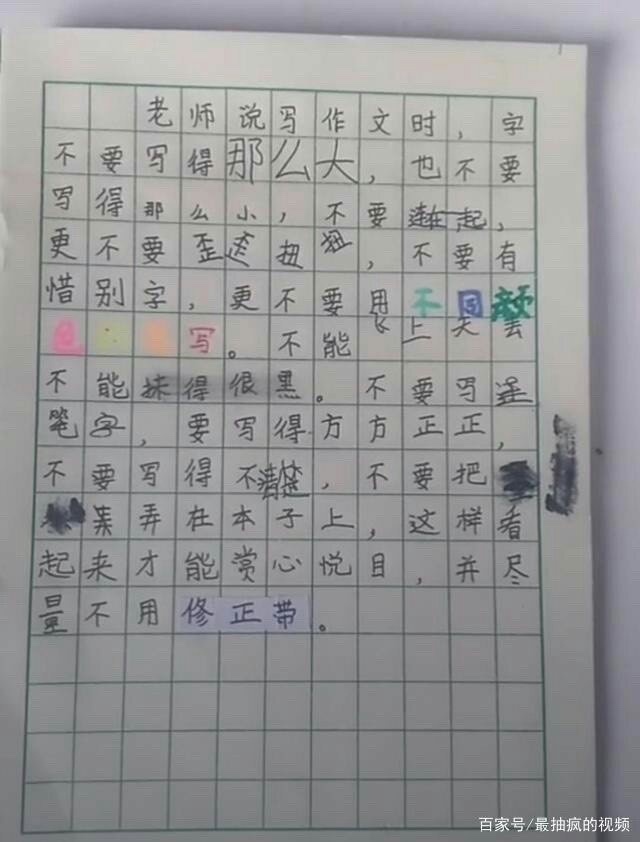 老师说写作文时，字
不要写得那么大，也不要
写得那么小，不要连在一起，
更不要歪歪扭扭，不要有
惜别字，更不要用不同颜
色写。不能飞上天去
不能抹得很黑。不要写连
笔字，要写得方方正正，
不要写得不清楚，不要把
弄在本子上，这样看
起来才能赏心悦目，并尽
量不用修正带。
百家号/最抽疯的视频